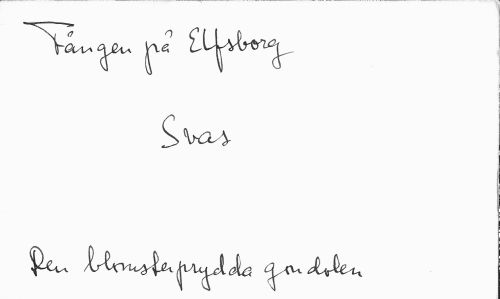 Fången på Elfsborg
Svas
Den blomsterprydda gondolen